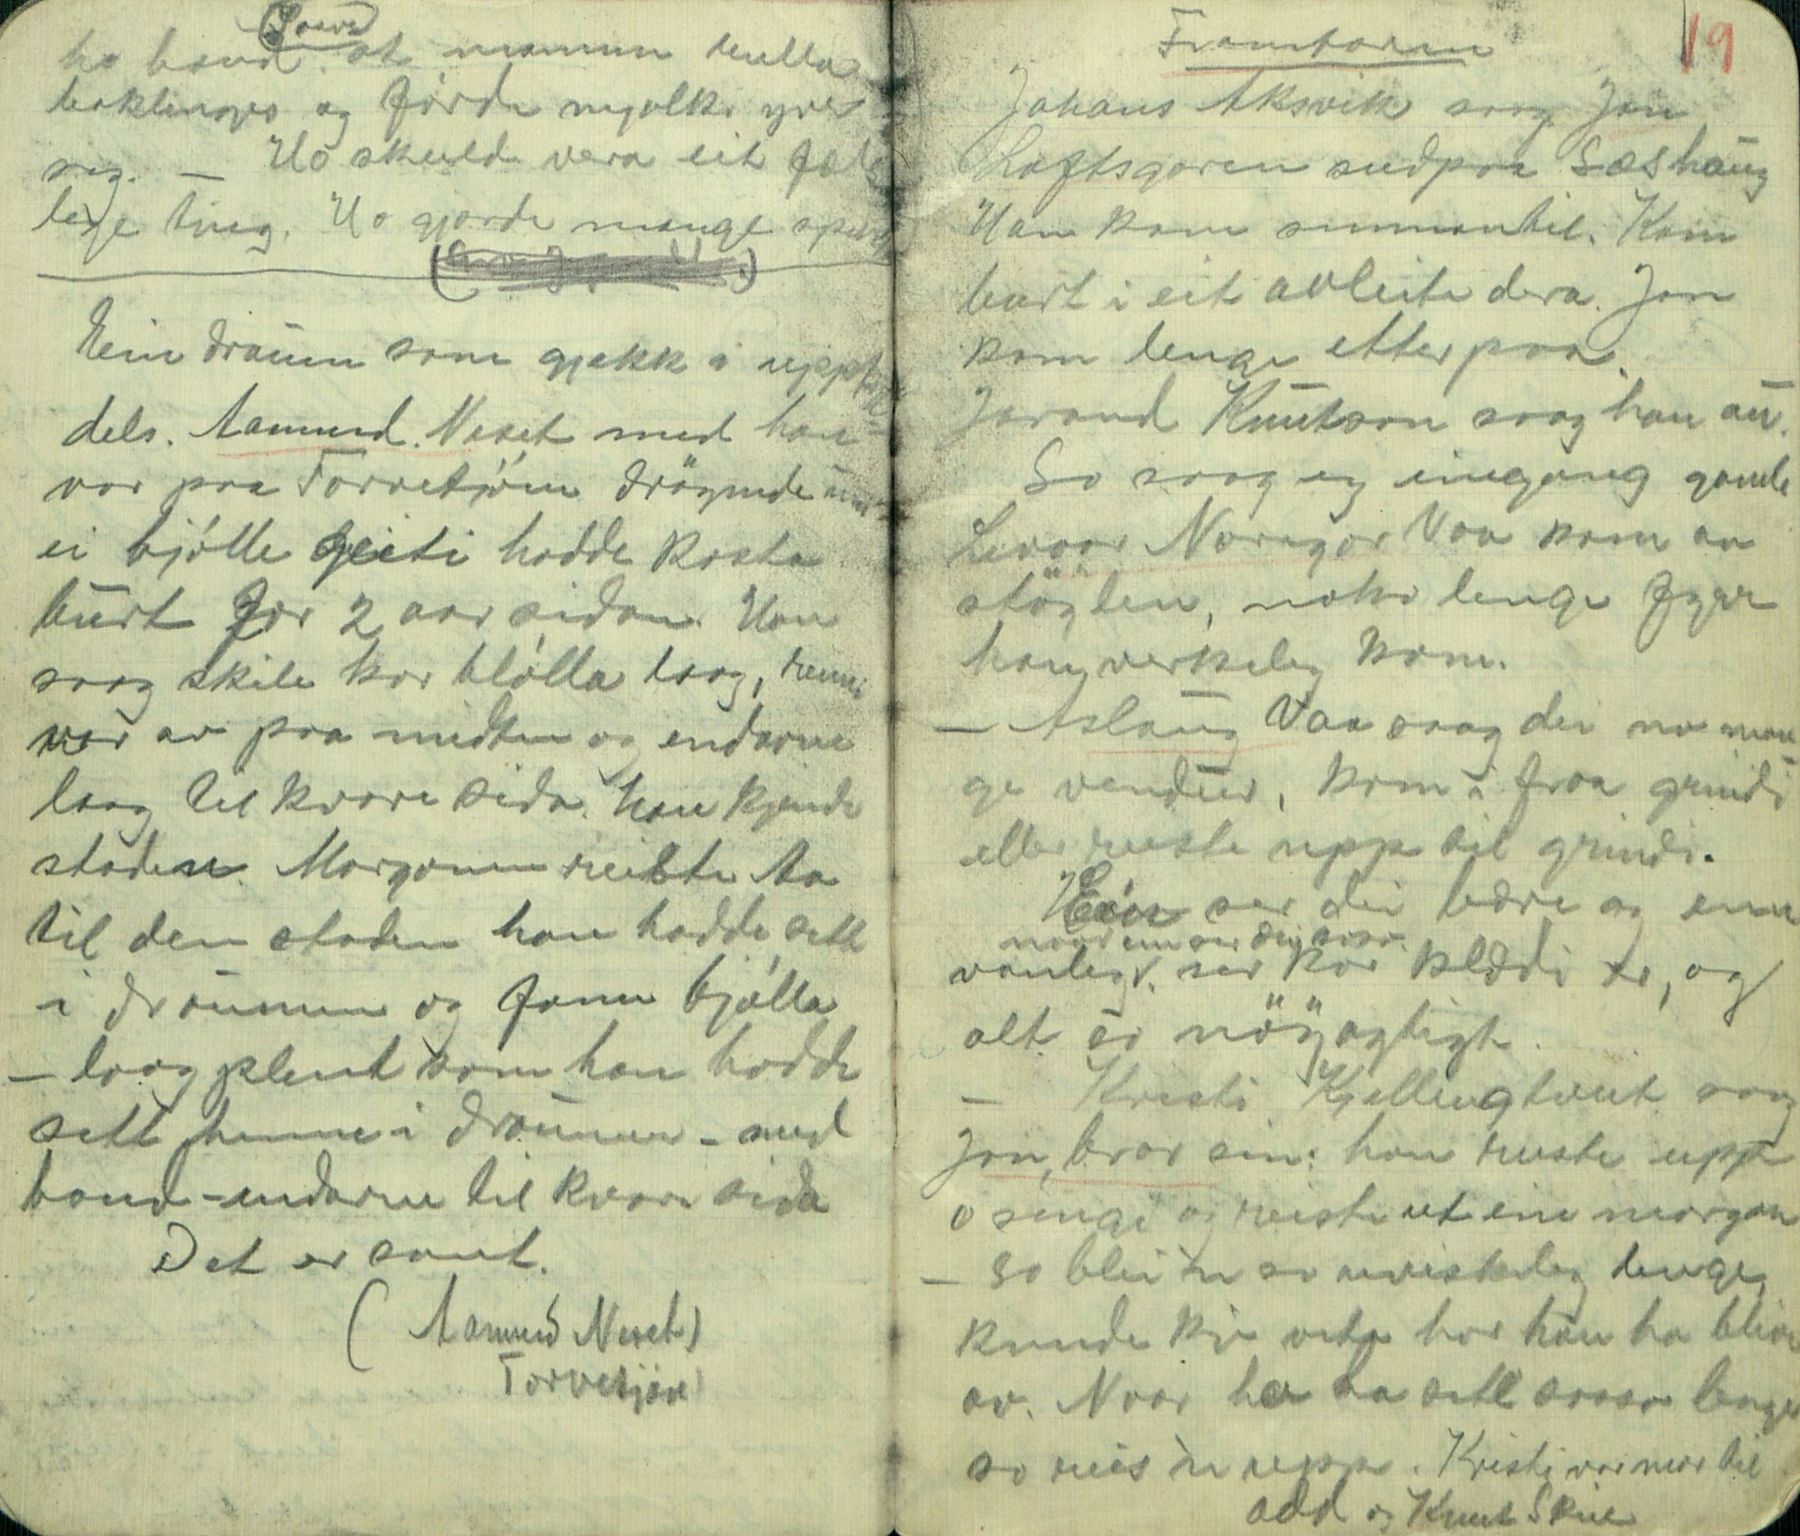 (Soave)
ho baud at mannen trilla
baklengs og förde mjölki yve
seg. — Ho skulde vera eit fæle
lege ting. Ho gjorde mange spelog
Ein draum som gjekk i uppfyl
dels. Aamund Neset med han
var paa Torvetjönn drögmde um
ei bjölle geiti hadde kasta
burt for 2 aar sidan. Han
saag skile kor bjölla laag, reimi
var av paa midten og endarne
laag til kvare sida. han kjende
staden. Morgonen reiste Aa
til den staden han hadde sett
i draumen og fann bjölla
— laag plent som han hadde
sett henne i draumen — med
band-endarne til kvare sida
Det er sant.
(Aamund Neset)
Torvetjönn
19
Framfaren
Johans Aksvik saag Jon
Loftsgaren sudpaa Sæshaug
Han kom sunnantil. Kom
burt i eit avleite dera. Jon
kom lenge etterpaa.
Jorand Knutson saag han au.
So saag eg eingong gamle
Levoor Norigar Vaa kom aa
stöglen, noko lenge fyrr
han verkeleg kom.
— Aslaug Vaa saag dei no man
ge vendur, kom i fraa grindi
eller reiste upp til grindi.
Ein ser dei bære og enn
naar ein ser dei soso
vanlegt, ser kor klædi er, og
alt er nöÿagtigt.
— Kristi Kjellingtveit saag
Jon, bror sin: han reiste upp
o sengi og reiste ut ein morgon
— so blei 'n so uviskeleg lenge,
kunde kje vita hor han ha blive
av. Naar ho ha sett soso lenge
so reis 'n upp. Kristi var mor til
Odd og Knut Skre